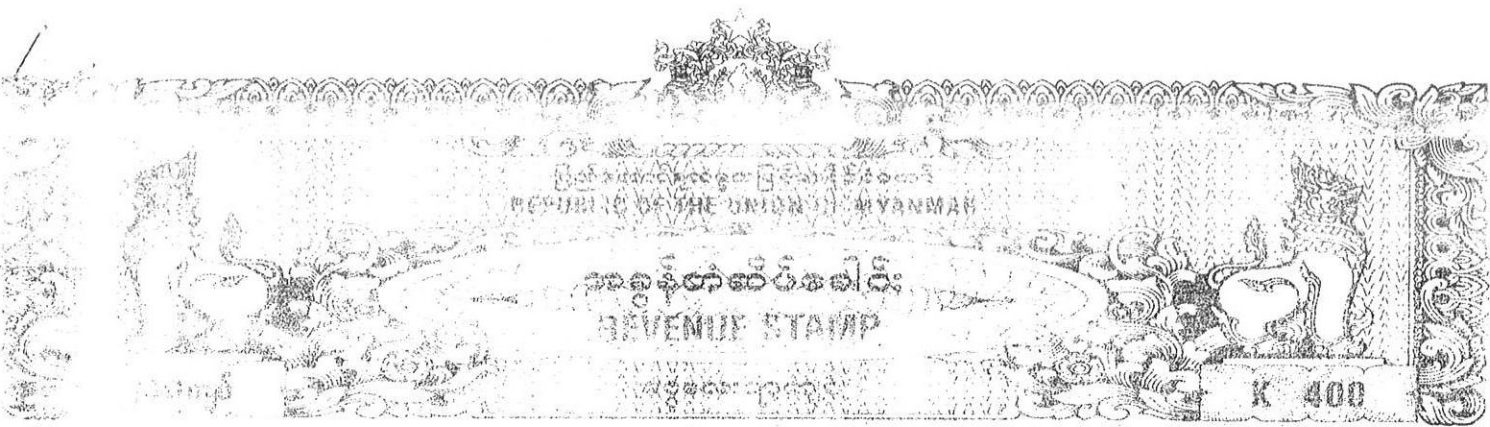 ပြည်ထောင်စုသမ္မတမြန်မာနိုင်ငံတော်
REPUBLIC OF THE UNION OF MYANMAR
အခွန်တံဆိပ်ခေါင်း
REVENUE STAMP
K 400